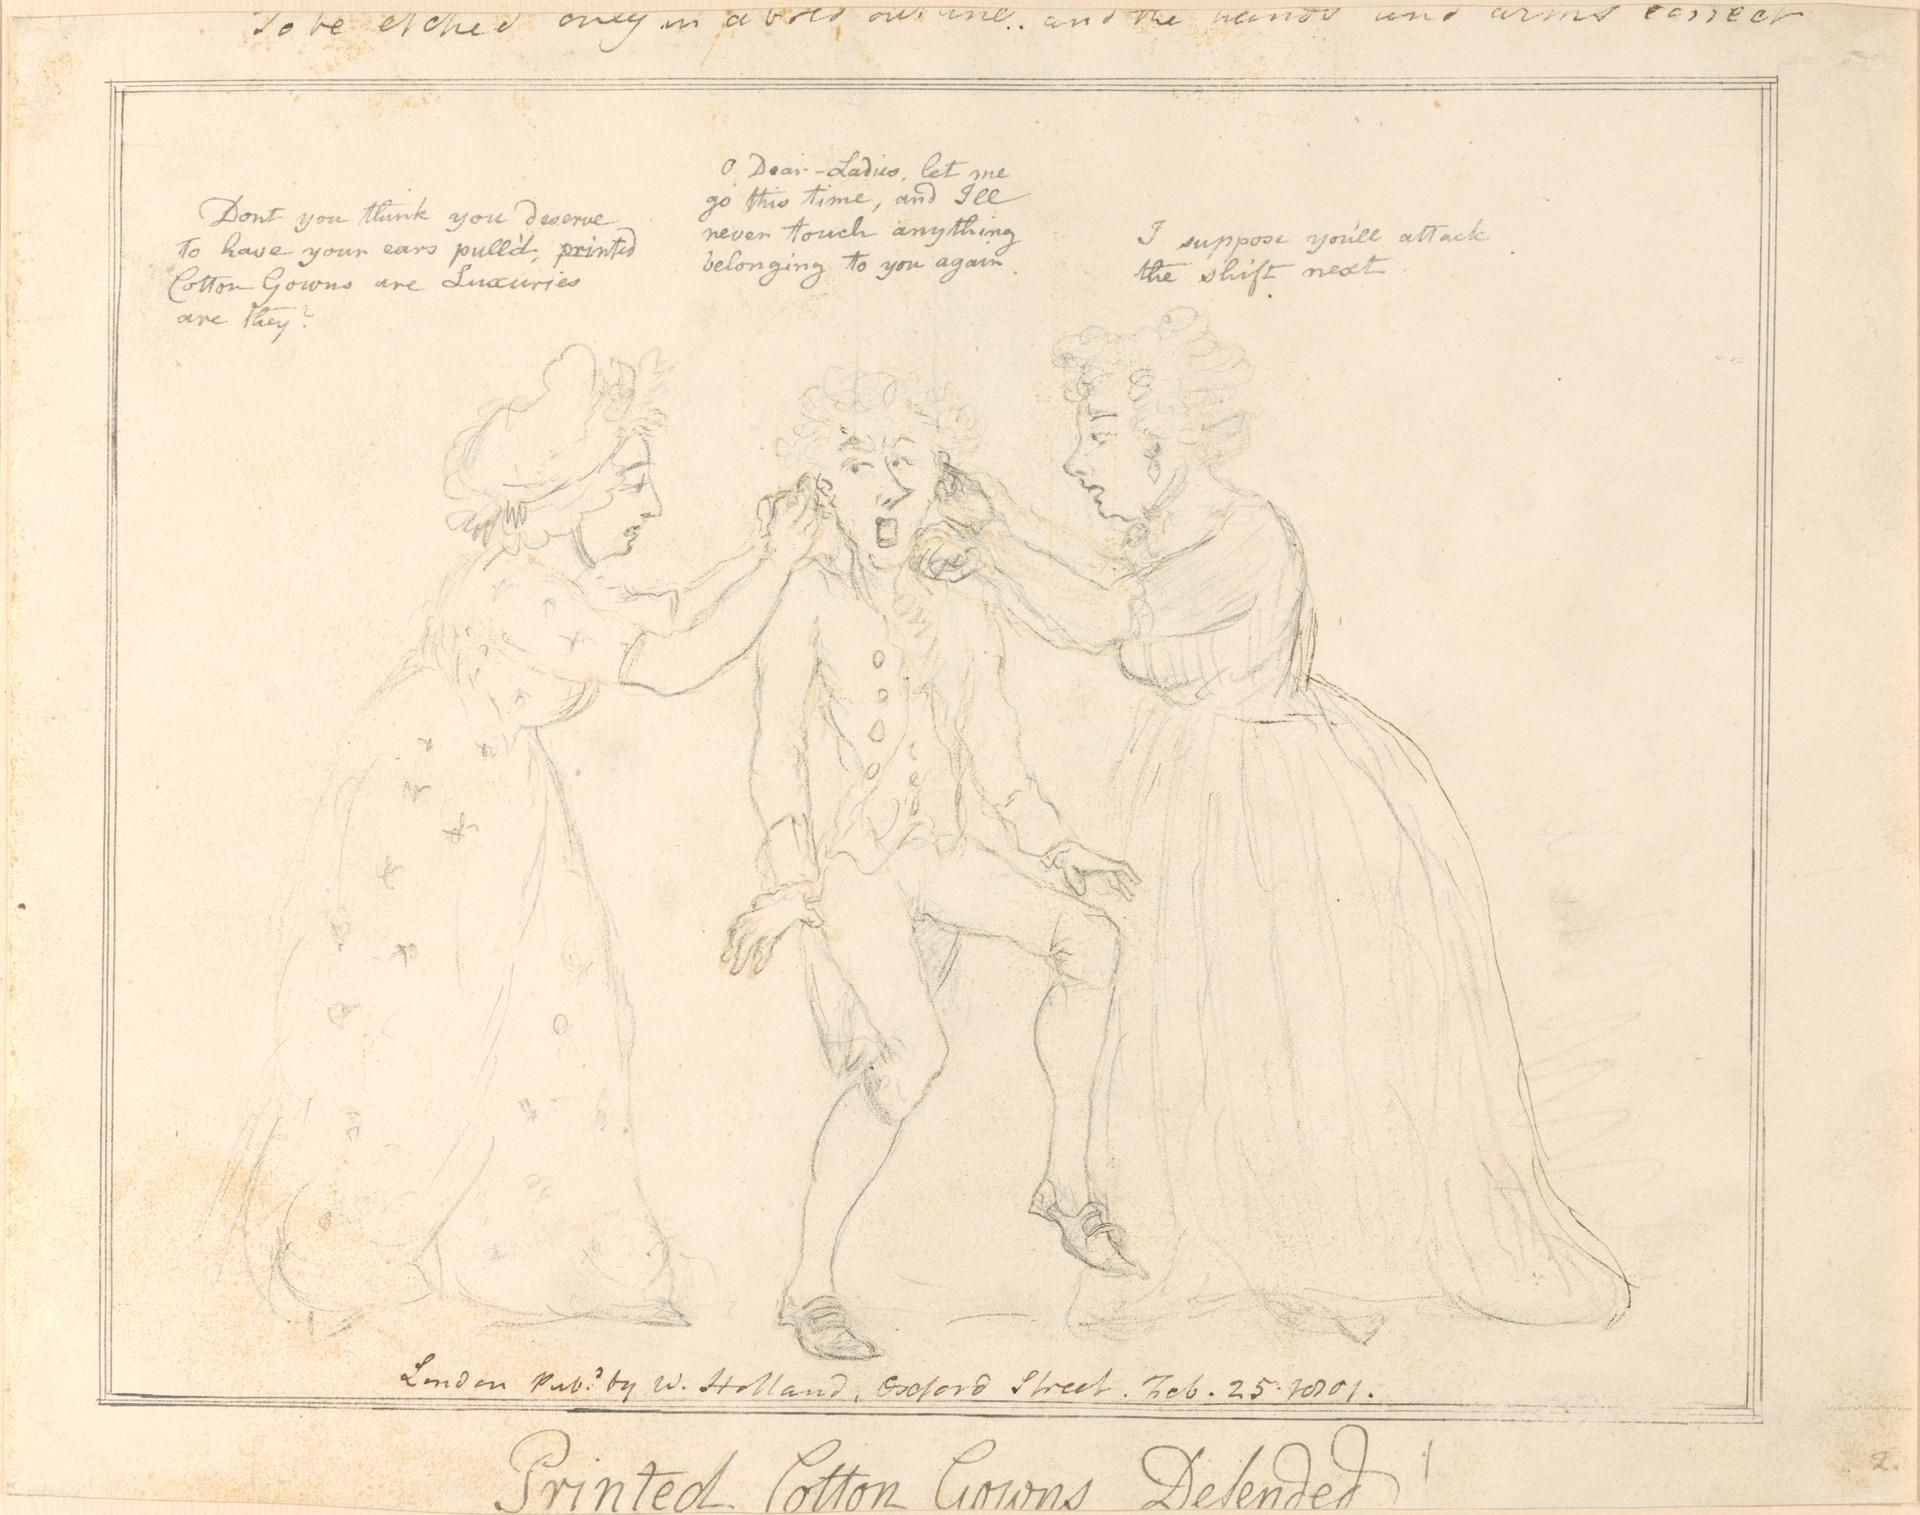 To be etched only in a bold outline.. and the hands and arms correct
Dont you think you deserve
to have your ears pull'd, printed
Cotton Gowns are Luxuries
are they?
O Dear - Ladies, let me
go this time, and I'll
never touch anything
belonging to you again.
I suppose you'll attack
the shift next.
London Pub.d by W. Holland, Oxford Street. Feb. 25. 1801.
Printed Cotton Gowns Defended!
2.